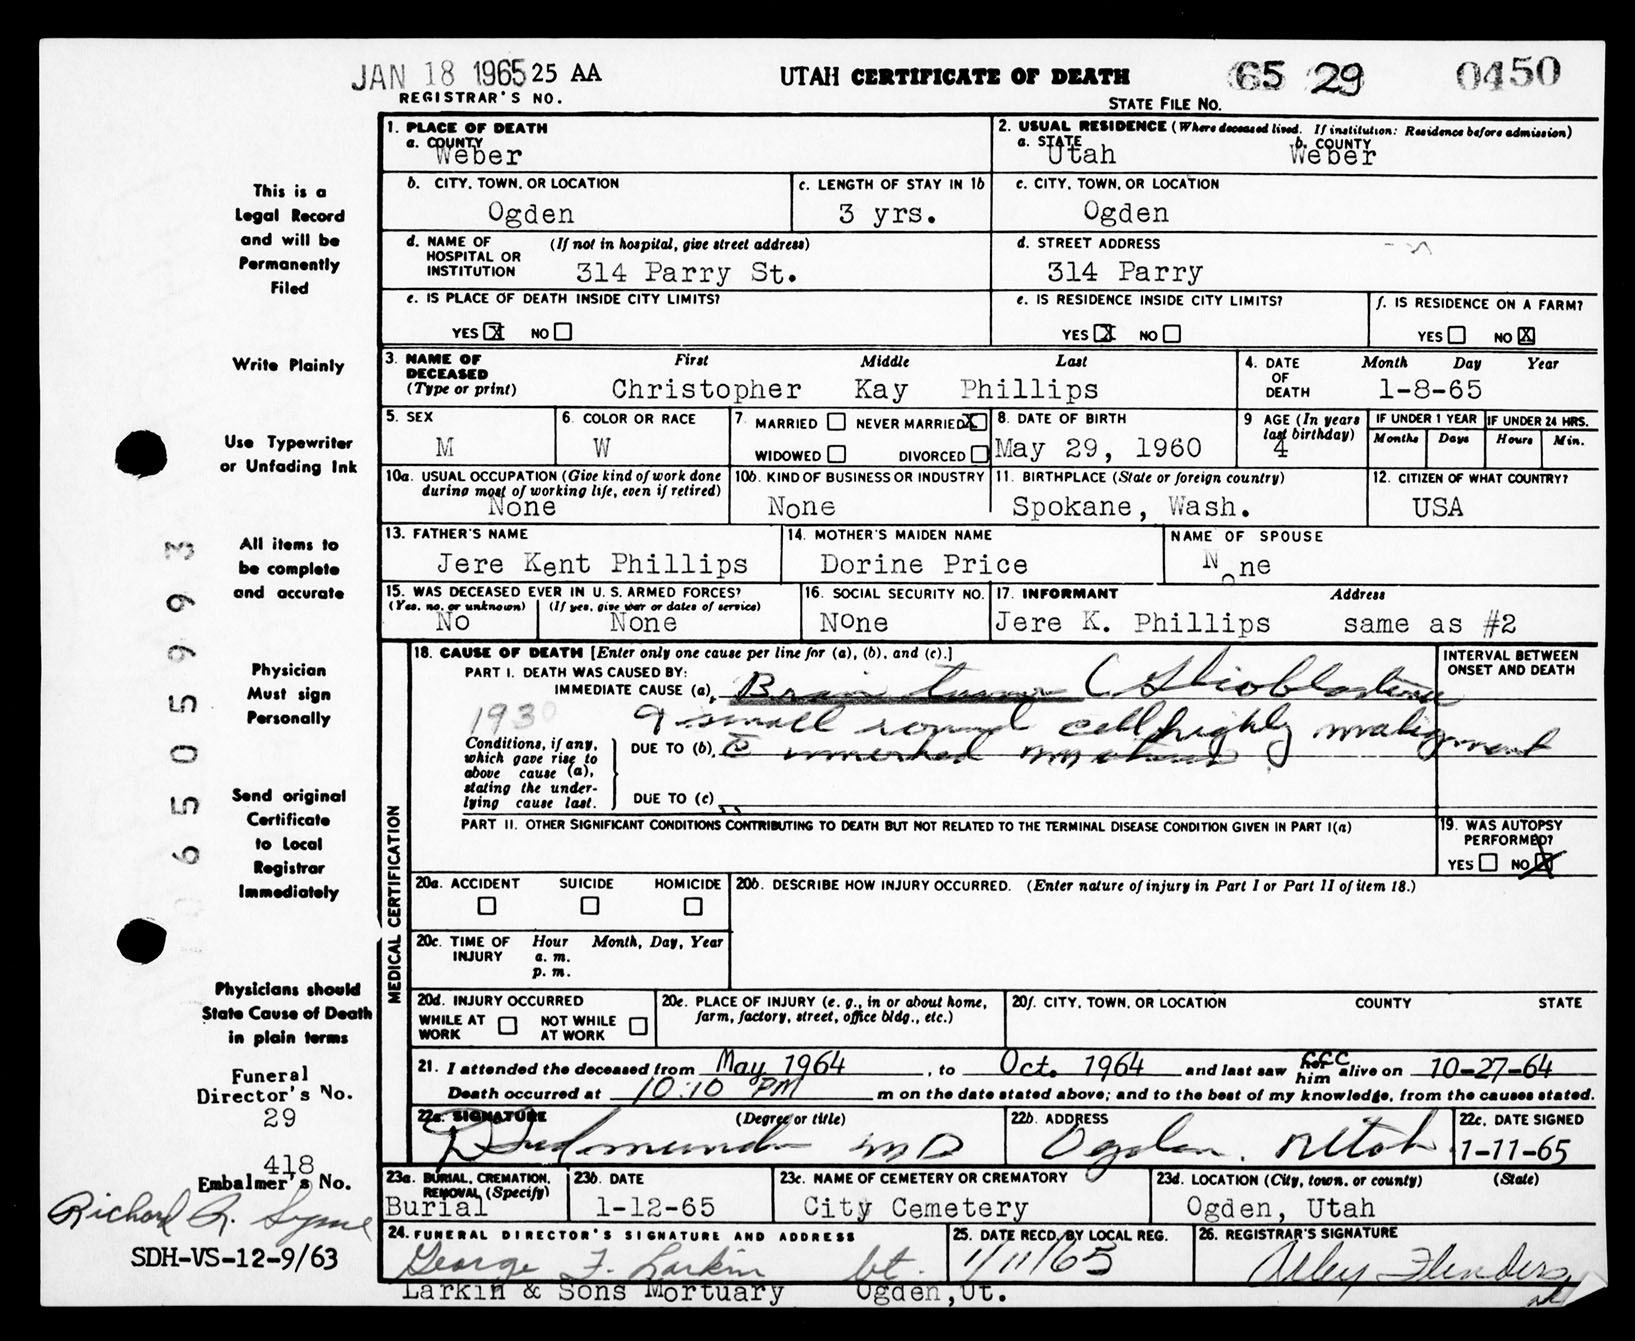 JAN 18 1965 25 AA UTAH CERTIFICATE OF DEATH 65 29 0450
REGISTRAR'S NO. STATE FILE NO.
1. PLACE OF DEATH
a. COUNTY
Weber
2. USUAL RESIDENCE (Where deceased lived. If institution: Residence before admission)
a. STATE b. COUNTY
Utah Weber
b. CITY, TOWN, OR LOCATION
Ogden
c. LENGTH OF STAY IN 1b
3 yrs.
c. CITY, TOWN, OR LOCATION
Ogden
d. NAME OF HOSPITAL OR INSTITUTION (If not in hospital, give street address)
314 Parry St.
d. STREET ADDRESS
314 Parry
e. IS PLACE OF DEATH INSIDE CITY LIMITS?
YES X NO
e. IS RESIDENCE INSIDE CITY LIMITS?
YES X NO
f. IS RESIDENCE ON A FARM?
YES NO X
3. NAME OF DECEASED (Type or print) First Middle Last
Christopher Kay Phillips
4. DATE OF DEATH Month Day Year
1-8-65
5. SEX
M
6. COLOR OR RACE
W
7. MARRIED NEVER MARRIED X
WIDOWED DIVORCED
8. DATE OF BIRTH
May 29, 1960
9 AGE (In years last birthday)
4
IF UNDER 1 YEAR IF UNDER 24 HRS.
Months Days Hours Min.
10a. USUAL OCCUPATION (Give kind of work done during most of working life, even if retired)
None
10b. KIND OF BUSINESS OR INDUSTRY
None
11. BIRTHPLACE (State or foreign country)
Spokane, Wash.
12. CITIZEN OF WHAT COUNTRY?
USA
13. FATHER'S NAME
Jere Kent Phillips
14. MOTHER'S MAIDEN NAME
Dorine Price
NAME OF SPOUSE
None
15. WAS DECEASED EVER IN U.S. ARMED FORCES?
(Yes, no, or unknown) (If yes, give war or dates of service)
No None
16. SOCIAL SECURITY NO.
None
17. INFORMANT Address
Jere K. Phillips same as #2
18. CAUSE OF DEATH [Enter only one cause per line for (a), (b), and (c).]
INTERVAL BETWEEN ONSET AND DEATH
PART I. DEATH WAS CAUSED BY:
IMMEDIATE CAUSE (a) Brain tumor (Glioblastoma
1930
small round cell, highly malignant
Conditions, if any, which gave rise to above cause (a), stating the underlying cause last.
DUE TO (b)
DUE TO (c)
PART II. OTHER SIGNIFICANT CONDITIONS CONTRIBUTING TO DEATH BUT NOT RELATED TO THE TERMINAL DISEASE CONDITION GIVEN IN PART I(a)
19. WAS AUTOPSY PERFORMED?
YES NO X
MEDICAL CERTIFICATION
20a. ACCIDENT SUICIDE HOMICIDE
20b. DESCRIBE HOW INJURY OCCURRED. (Enter nature of injury in Part I or Part II of item 18.)
20c. TIME OF INJURY Hour Month, Day, Year
a. m.
p. m.
20d. INJURY OCCURRED
WHILE AT WORK NOT WHILE AT WORK
20e. PLACE OF INJURY (e. g., in or about home, farm, factory, street, office bldg., etc.)
20f. CITY, TOWN, OR LOCATION COUNTY STATE
21. I attended the deceased from May 1964, to Oct. 1964 and last saw her him alive on 10-27-64
Death occurred at 10:10 PM m on the date stated above; and to the best of my knowledge, from the causes stated.
22a. SIGNATURE (Degree or title)
MD
22b. ADDRESS
Ogden, Utah
22c. DATE SIGNED
1-11-65
23a. BURIAL, CREMATION, REMOVAL (Specify)
Burial
23b. DATE
1-12-65
23c. NAME OF CEMETERY OR CREMATORY
City Cemetery
23d. LOCATION (City, town, or county) (State)
Ogden, Utah
24. FUNERAL DIRECTOR'S SIGNATURE AND ADDRESS
George F. Larkin
Larkin & Sons Mortuary Ogden, Ut.
25. DATE RECD. BY LOCAL REG.
1/11/65
26. REGISTRAR'S SIGNATURE
Arley Flinders
This is a
Legal Record
and will be
Permanently
Filed
Write Plainly
Use Typewriter
or Unfading Ink
All items to
be complete
and accurate
Physician
Must sign
Personally
Send original
Certificate
to Local
Registrar
Immediately
Physicians should
State Cause of Death
in plain terms
Funeral
Director's No.
29
418
Embalmer's No.
Richard R.
SDH-VS-12-9/63
0650593